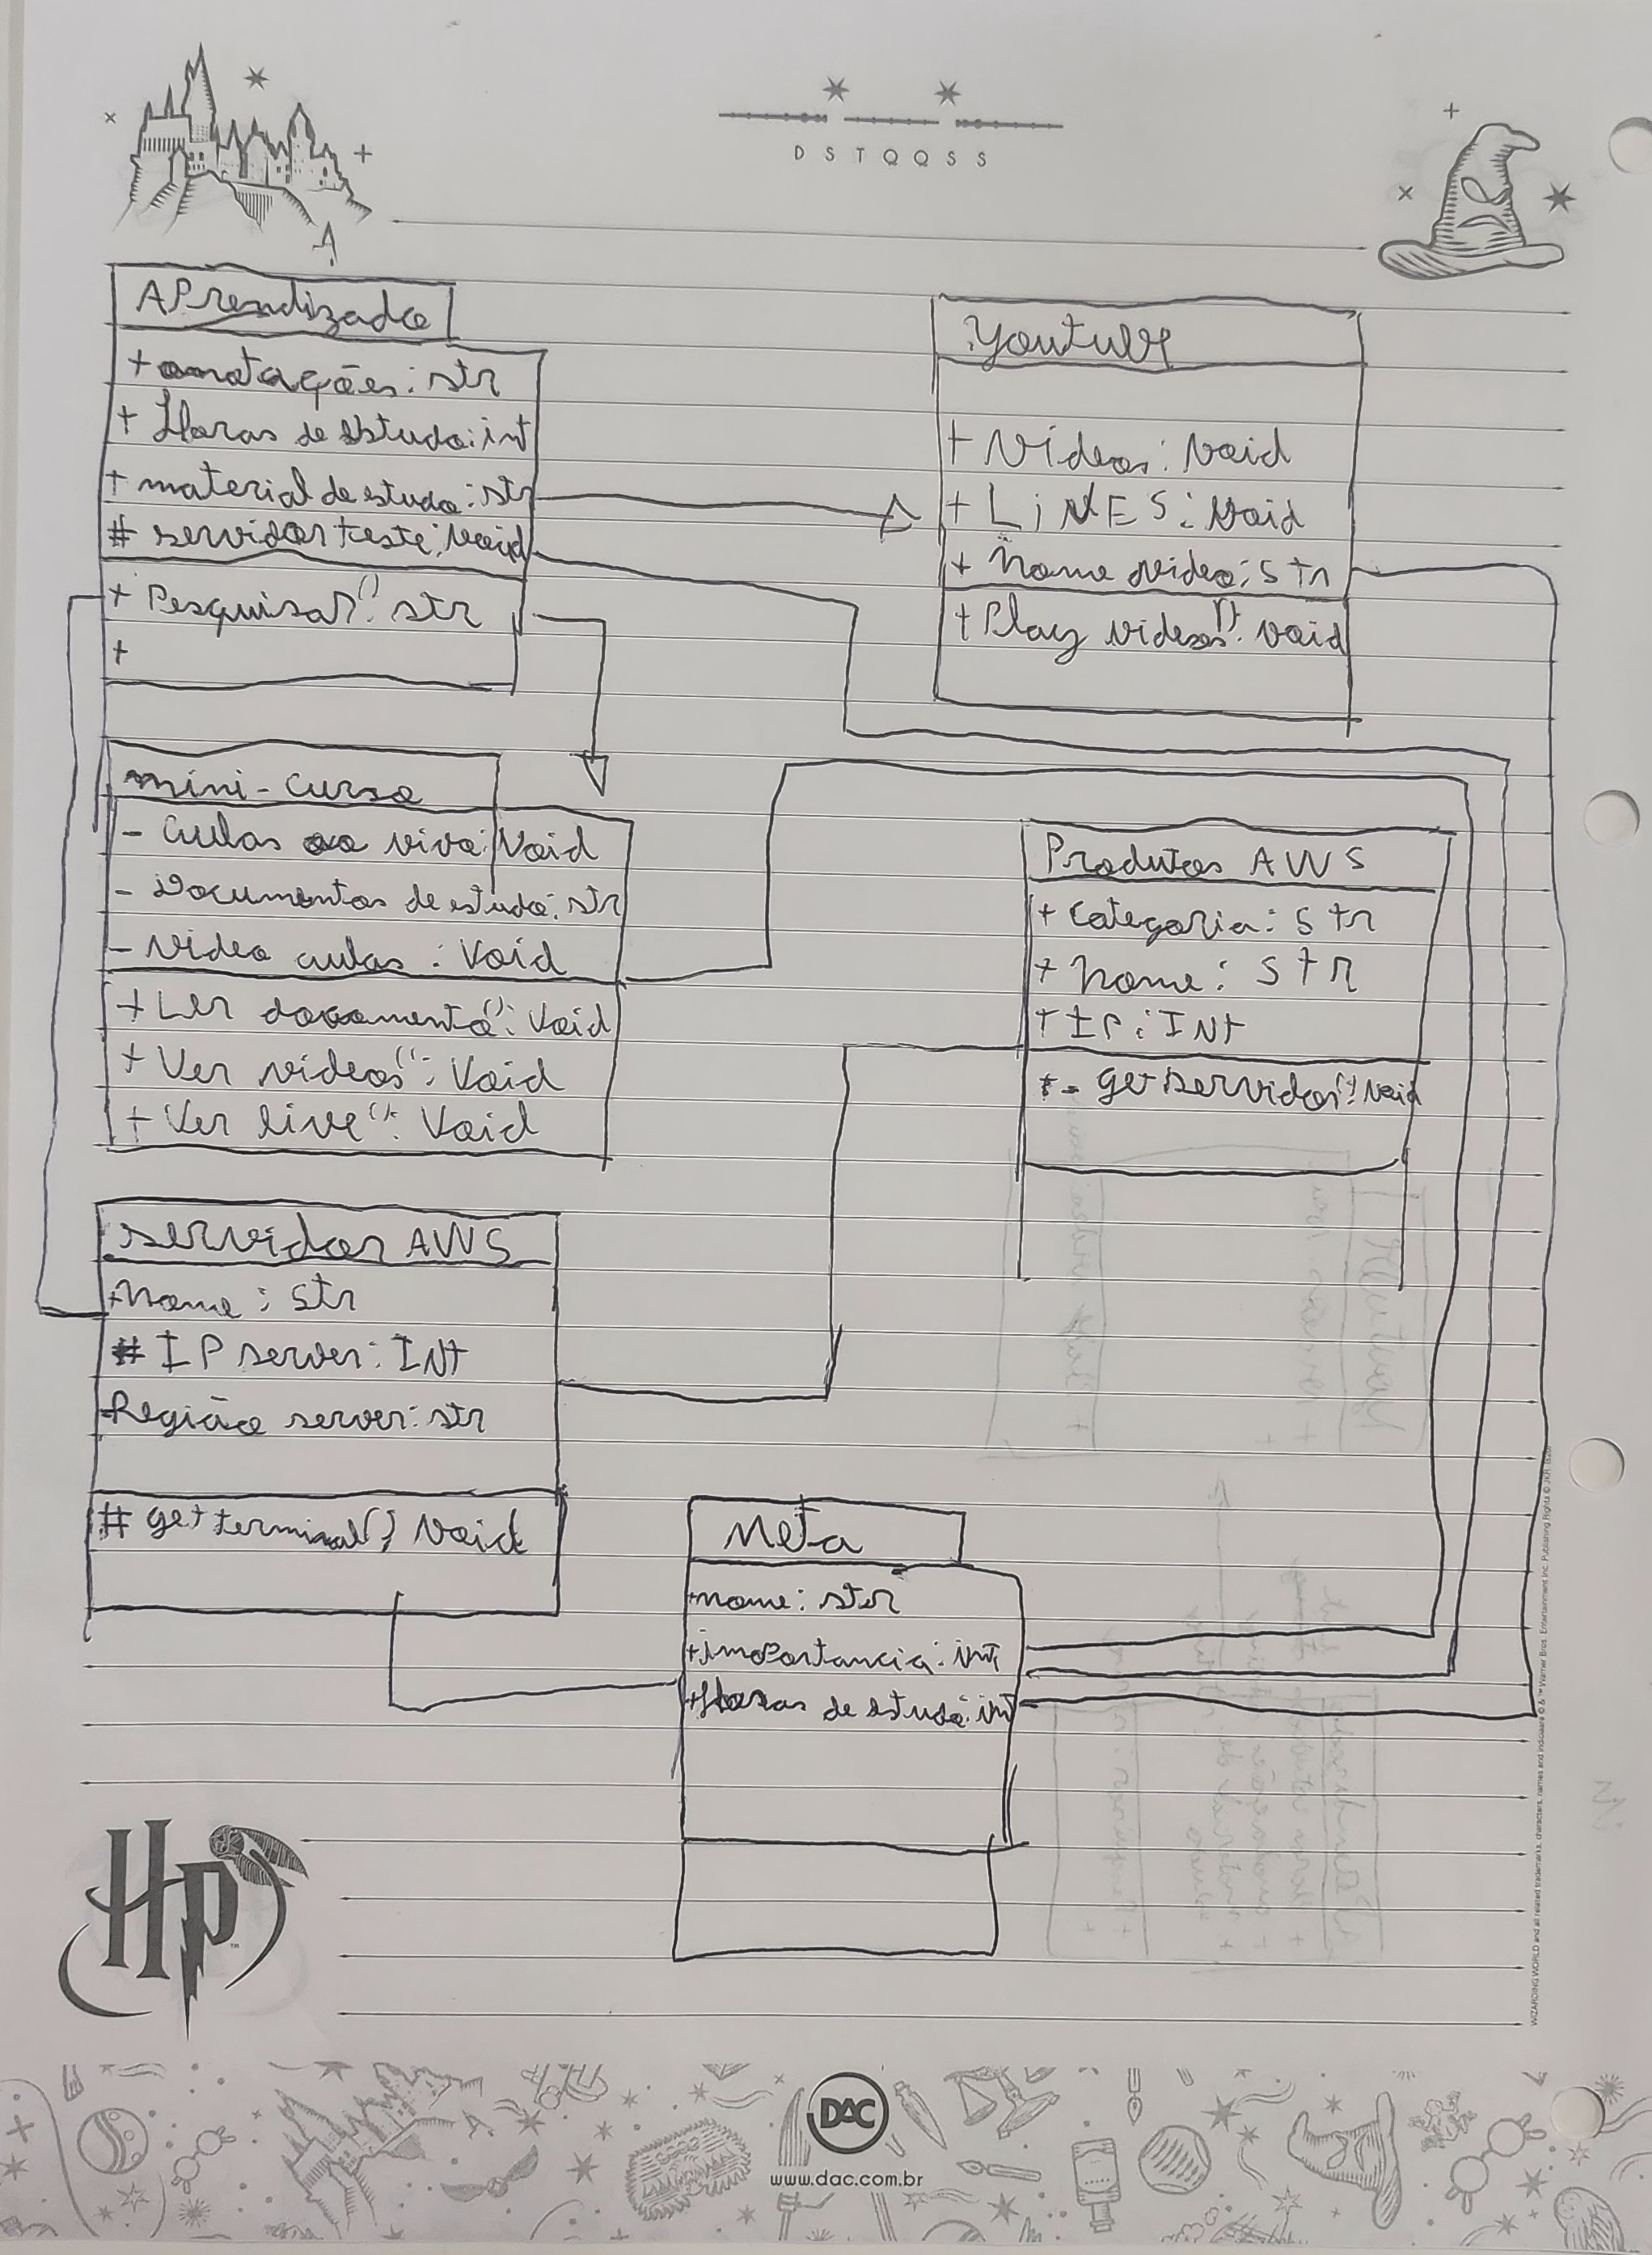 D S T Q Q S S
A
Aprendizado
+ anotações: str
+ Horas de Estudo: int
+ material de estudo: str
# servidor teste: Void
+ Pesquisar(): str
+
Youtube
+ Vídeos: Void
+ LiVES: Void
+ Nome video: Str
+ Play videos(): Void
mini-curso
- Aulas ao vivo: Void
- Documentos de estudo: str
- Video aulas: Void
+ Ler documento(): Void
+ Ver videos(): Void
+ Ver live(): Void
Produtos AWS
+ Categoria: Str
+ Nome: Str
+ IP: INt
+- get servidor(): Void
servidor AWS
+Nome: Str
# IP server: INt
Região server: str
# get terminal() Void
Meta
+nome: str
+importancia: int
+Horas de Estudo: int
HP
™
WIZARDING WORLD and all related trademarks, characters, names and indicia are © & ™ Warner Bros. Entertainment Inc. Publishing Rights © JKR. (s20)
DAC
www.dac.com.br